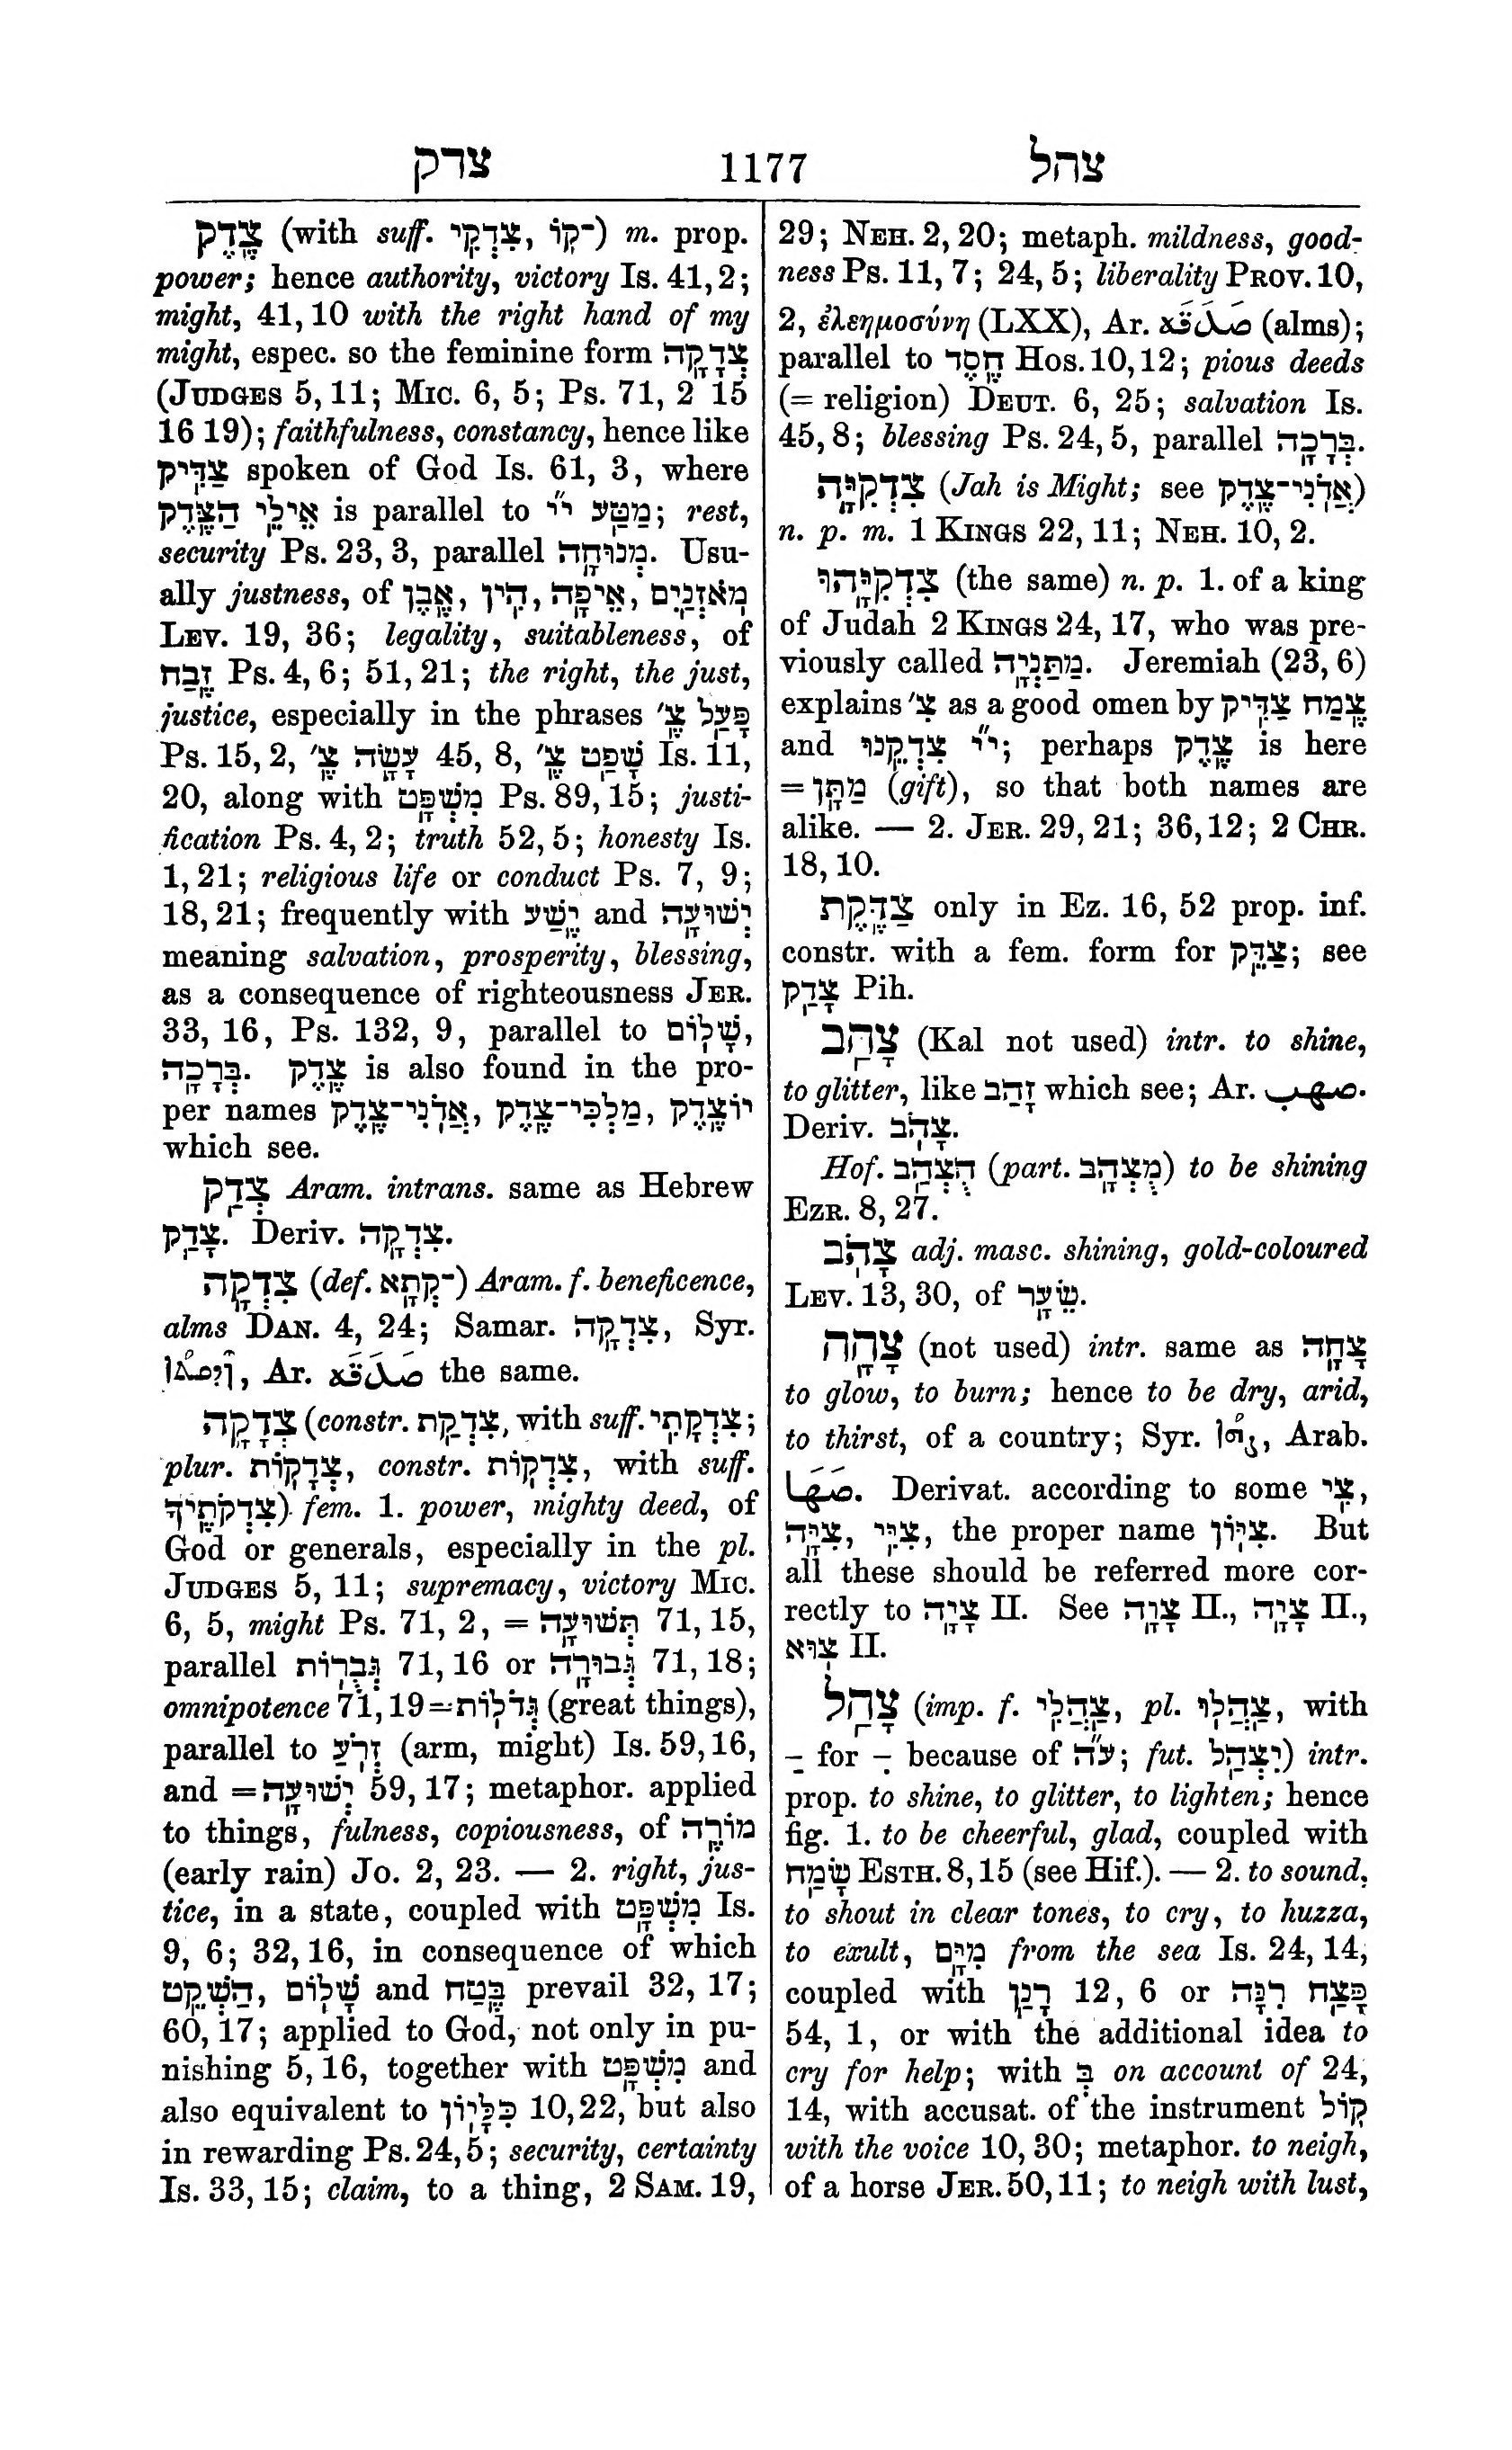 צדק 1177 צהל
צֶדֶק (with suff. צִדְקִי, ־קוֹ) m. prop.
power; hence authority, victory Is. 41,2;
might, 41,10 with the right hand of my
might, espec. so the feminine form צְדָקָה
(JUDGES 5,11; MIC. 6, 5; Ps. 71, 2 15
16 19); faithfulness, constancy, hence like
צַדִּיק spoken of God Is. 61, 3, where
אֵילֵי הַצֶּדֶק is parallel to מַטַּע י״י; rest,
security Ps. 23, 3, parallel מְנוּחָה. Usu-
ally justness, of מֹאזְנַיִם, אֵיפָה, הִין, אֶבֶן
LEV. 19, 36; legality, suitableness, of
זֶבַח Ps. 4, 6; 51, 21; the right, the just,
justice, especially in the phrases פָּעַל צֶ׳
Ps. 15, 2, עָשָׂה צֶ׳ 45, 8, שָׁפַט צֶ׳ Is. 11,
20, along with מִשְׁפָּט Ps. 89, 15; justi-
fication Ps. 4, 2; truth 52, 5; honesty Is.
1, 21; religious life or conduct Ps. 7, 9;
18, 21; frequently with יֶשַׁע and יְשׁוּעָה
meaning salvation, prosperity, blessing,
as a consequence of righteousness JER.
33, 16, Ps. 132, 9, parallel to שָׁלוֹם,
בְּרָכָה. צֶדֶק is also found in the pro-
per names אֲדֹנִי־צֶדֶק, מַלְכִּי־צֶדֶק, יוֹצֶדֶק
which see.
צְדַק Aram. intrans. same as Hebrew
צָדַק. Deriv. צִדְקָה.
צִדְקָה (def. ־קְתָא) Aram. f. beneficence,
alms DAN. 4, 24; Samar. צִדְקָה, Syr.
ܙܕܩܬܐ, Ar. صَدَقَة the same.
צְדָקָה (constr. צִדְקַת, with suff. צִדְקָתִי;
plur. צְדָקוֹת, constr. צִדְקוֹת, with suff.
צִדְקֹתֶיךָ) fem. 1. power, mighty deed, of
God or generals, especially in the pl.
JUDGES 5, 11; supremacy, victory MIC.
6, 5, might Ps. 71, 2, = תְּשׁוּעָה 71, 15,
parallel גְּבֻרוֹת 71, 16 or גְּבוּרָה 71, 18;
omnipotence 71, 19 = גְּדֹלוֹת (great things),
parallel to זְרֹעַ (arm, might) Is. 59, 16,
and = יְשׁוּעָה 59, 17; metaphor. applied
to things, fulness, copiousness, of מוֹרֶה
(early rain) Jo. 2, 23. — 2. right, jus-
tice, in a state, coupled with מִשְׁפָּט Is.
9, 6; 32, 16, in consequence of which
הַשְׁקֵט, שָׁלוֹם and בֶּטַח prevail 32, 17;
60, 17; applied to God, not only in pu-
nishing 5, 16, together with מִשְׁפָּט and
also equivalent to כִּלָּיוֹן 10, 22, but also
in rewarding Ps. 24, 5; security, certainty
Is. 33, 15; claim, to a thing, 2 SAM. 19,
29; NEH. 2, 20; metaph. mildness, good-
ness Ps. 11, 7; 24, 5; liberality PROV. 10,
2, ἐλεημοσύνη (LXX), Ar. صَدَقَة (alms);
parallel to חֶסֶד Hos. 10, 12; pious deeds
(= religion) DEUT. 6, 25; salvation Is.
45, 8; blessing Ps. 24, 5, parallel בְּרָכָה.
צִדְקִיָּה (Jah is Might; see אֲדֹנִי־צֶדֶק)
n. p. m. 1 KINGS 22, 11; NEH. 10, 2.
צִדְקִיָּהוּ (the same) n. p. 1. of a king
of Judah 2 KINGS 24, 17, who was pre-
viously called מַתַּנְיָה. Jeremiah (23, 6)
explains צִ׳ as a good omen by צֶמַח צַדִּיק
and י״י צִדְקֵנוּ; perhaps צֶדֶק is here
= מַתָּן (gift), so that both names are
alike. — 2. JER. 29, 21; 36, 12; 2 CHR.
18, 10.
צַדֶּקֶת only in Ez. 16, 52 prop. inf.
constr. with a fem. form for צַדֵּק; see
צָדַק Pih.
צָהַב (Kal not used) intr. to shine,
to glitter, like זָהַב which see; Ar. صهب.
Deriv. צָהֹב.
Hof. הֻצְהַב (part. מֻצְהָב) to be shining
EZR. 8, 27.
צָהֹב adj. masc. shining, gold-coloured
LEV. 13, 30, of שֵׂעָר.
צָהָה (not used) intr. same as צָחָה
to glow, to burn; hence to be dry, arid,
to thirst, of a country; Syr. ܨܗܐ, Arab.
صَهَا. Derivat. according to some צִי,
צִיָּה, צִיִּי, the proper name צִיּוֹן. But
all these should be referred more cor-
rectly to צָיָה II. See צָוָה II., צָיָה II.,
צוּא II.
צָהַל (imp. f. צַהֲלִי, pl. צַהֲלוּ, with
ַ for ִ because of ע״ה; fut. יִצְהַל) intr.
prop. to shine, to glitter, to lighten; hence
fig. 1. to be cheerful, glad, coupled with
שָׂמַח ESTH. 8, 15 (see Hif.). — 2. to sound,
to shout in clear tones, to cry, to huzza,
to exult, מִיָּם from the sea Is. 24, 14,
coupled with רָנַן 12, 6 or פָּצַח רִנָּה
54, 1, or with the additional idea to
cry for help; with בְּ on account of 24,
14, with accusat. of the instrument קוֹל
with the voice 10, 30; metaphor. to neigh,
of a horse JER. 50, 11; to neigh with lust,